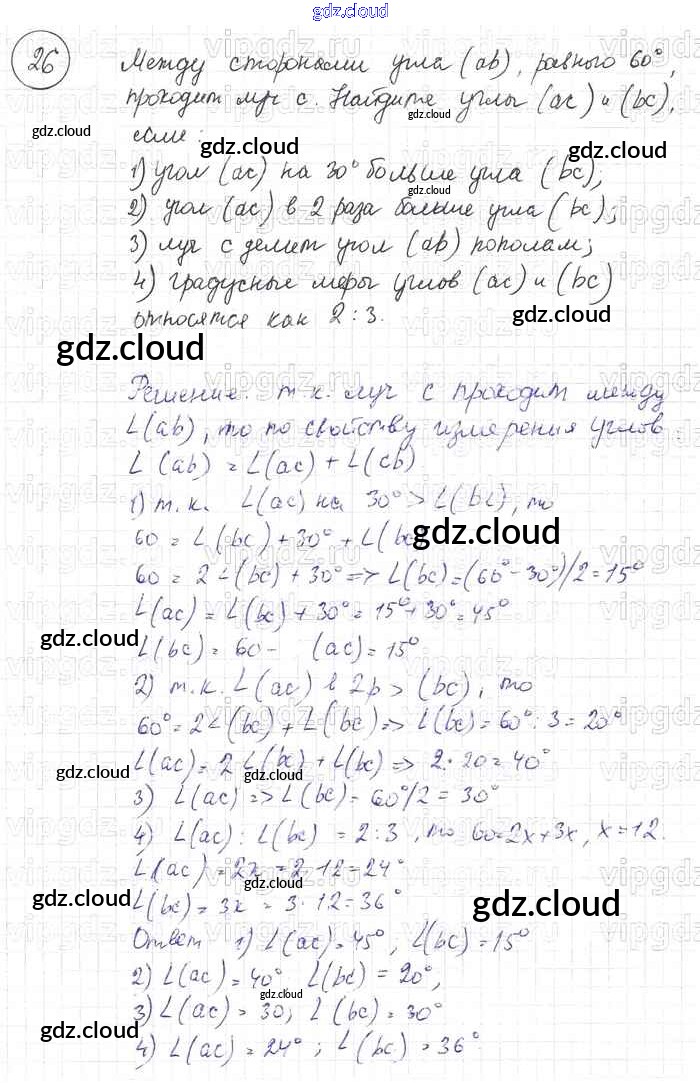 gdz.cloud
26
Между сторонами угла (ab), равного 60°,
проходит луч c. Найдите углы (ac) и (bc),
если:
1) угол (ac) на 30° больше угла (bc);
2) угол (ac) в 2 раза больше угла (bc);
3) луч c делит угол (ab) пополам;
4) градусные меры углов (ac) и (bc)
относятся как 2:3.
Решение: т.к. луч c проходит между
∠(ab), то по свойству измерения углов
∠(ab) = ∠(ac) + ∠(cb)
1) т.к. ∠(ac) на 30° > ∠(bc), то
60 = ∠(bc) + 30° + ∠(bc
60 = 2∠(bc) + 30° => ∠(bc) = (60° - 30°)/2 = 15°
∠(ac) = ∠(bc) + 30° = 15° + 30° = 45°
∠(bc) = 60 - (ac) = 15°
2) т.к. ∠(ac) в 2р > (bc), то
60° = 2∠(bc) + ∠(bc) => ∠(bc) = 60° : 3 = 20°
∠(ac) = 2∠(bc) + ∠(bc) => 2·20 = 40°
3) ∠(ac) => ∠(bc) = 60°/2 = 30°
4) ∠(ac) : ∠(bc) = 2:3, то 60 = 2x + 3x, x = 12.
∠(ac) = 2x = 2·12 = 24°
∠(bc) = 3x = 3·12 = 36°
Ответ 1) ∠(ac) = 45°, ∠(bc) = 15°
2) ∠(ac) = 40° ∠(bc) = 20°,
3) ∠(ac) = 30; ∠(bc) = 30°
4) ∠(ac) = 24°; ∠(bc) = 36°.